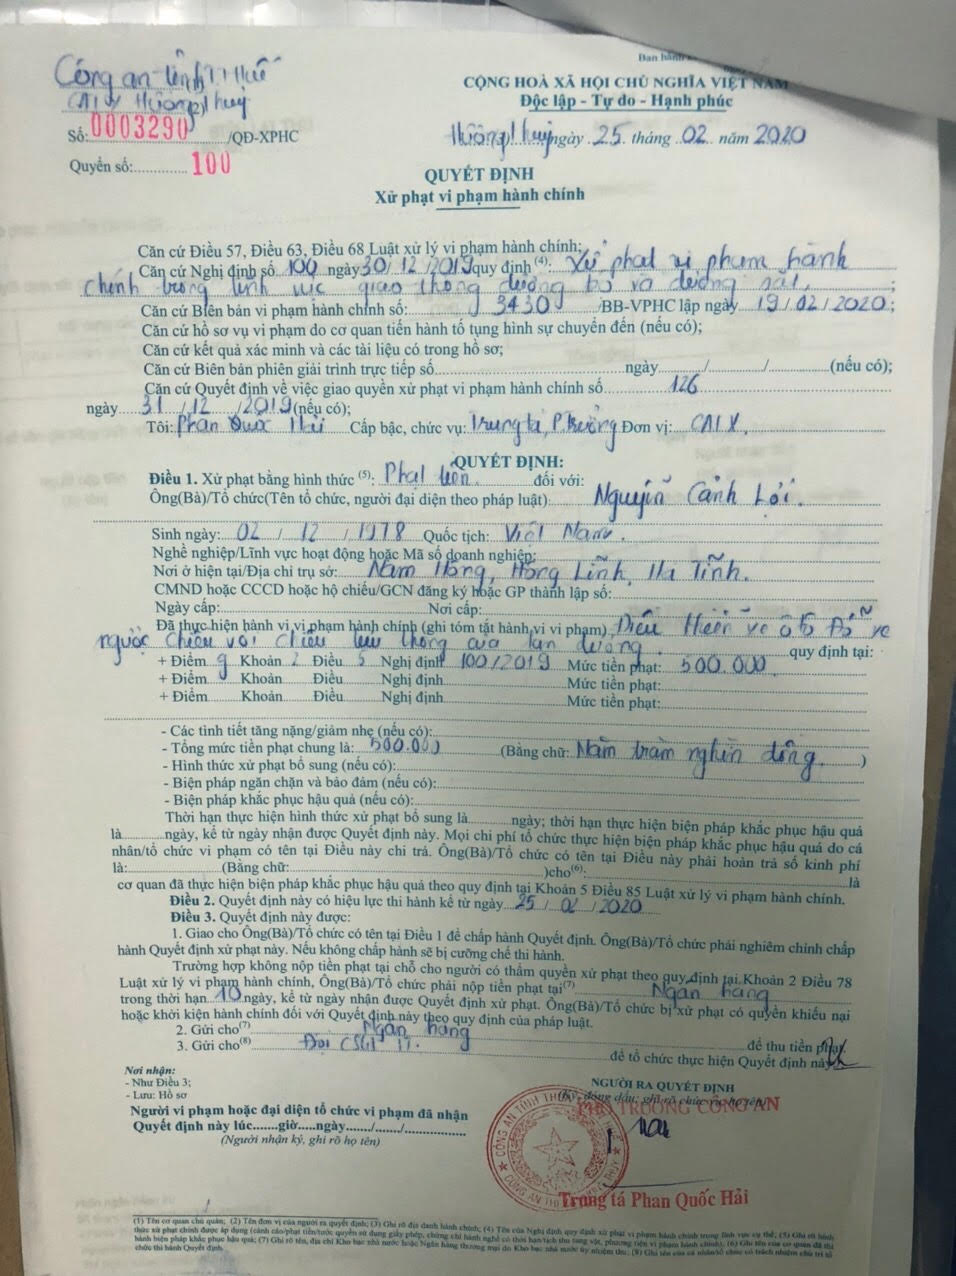 Ban hành
Công an tỉnh TT Huế
CATX Hương Thuỷ
CỘNG HOÀ XÃ HỘI CHỦ NGHĨA VIỆT NAM
Độc lập - Tự do - Hạnh phúc
Số: 0003290 /QĐ-XPHC
Quyển số: 100
Hương Thuỷ ngày 25 tháng 02 năm 2020
QUYẾT ĐỊNH
Xử phạt vi phạm hành chính
Căn cứ Điều 57, Điều 63, Điều 68 Luật xử lý vi phạm hành chính;
Căn cứ Nghị định số 100 ngày 30/12/2019 quy định (4): Xử phạt vi phạm hành
chính trong lĩnh vực giao thông đường bộ và đường sắt.;
Căn cứ Biên bản vi phạm hành chính số: 3430 /BB-VPHC lập ngày 19/02/2020;
Căn cứ hồ sơ vụ vi phạm do cơ quan tiến hành tố tụng hình sự chuyển đến (nếu có);
Căn cứ kết quả xác minh và các tài liệu có trong hồ sơ;
Căn cứ Biên bản phiên giải trình trực tiếp số ngày / / (nếu có);
Căn cứ Quyết định về việc giao quyền xử phạt vi phạm hành chính số 126
ngày 31/12/2019 (nếu có);
Tôi: Phan Quốc Hải Cấp bậc, chức vụ: Trung tá, P.trưởng Đơn vị: CATX.
QUYẾT ĐỊNH:
Điều 1. Xử phạt bằng hình thức (5): Phạt tiền. đối với:
Ông(Bà)/Tổ chức(Tên tổ chức, người đại diện theo pháp luật) Nguyễn Cảnh Lợi.
Sinh ngày: 02 / 12 / 1978 Quốc tịch: Việt Nam.
Nghề nghiệp/Lĩnh vực hoạt động hoặc Mã số doanh nghiệp:
Nơi ở hiện tại/Địa chỉ trụ sở: Nam Hồng, Hồng Lĩnh, Hà Tĩnh.
CMND hoặc CCCD hoặc hộ chiếu/GCN đăng ký hoặc GP thành lập số:
Ngày cấp: Nơi cấp:
Đã thực hiện hành vi vi phạm hành chính (ghi tóm tắt hành vi vi phạm) Điều khiển xe ô tô Đỗ xe
ngược chiều với chiều lưu thông của làn đường. quy định tại:
+ Điểm g Khoản 2 Điều 5 Nghị định 100/2019 Mức tiền phạt: 500.000
+ Điểm Khoản Điều Nghị định Mức tiền phạt:
+ Điểm Khoản Điều Nghị định Mức tiền phạt:
- Các tình tiết tăng nặng/giảm nhẹ (nếu có):
- Tổng mức tiền phạt chung là: 500.000 (Bằng chữ: Năm trăm nghìn đồng. )
- Hình thức xử phạt bổ sung (nếu có):
- Biện pháp ngăn chặn và bảo đảm (nếu có):
- Biện pháp khắc phục hậu quả (nếu có):
Thời hạn thực hiện hình thức xử phạt bổ sung là ngày; thời hạn thực hiện biện pháp khắc phục hậu quả
là ngày, kể từ ngày nhận được Quyết định này. Mọi chi phí tổ chức thực hiện biện pháp khắc phục hậu quả do cá
nhân/tổ chức vi phạm có tên tại Điều này chi trả. Ông(Bà)/Tổ chức có tên tại Điều này phải hoàn trả số kinh phí
là: (Bằng chữ: )cho(6): là
cơ quan đã thực hiện biện pháp khắc phục hậu quả theo quy định tại Khoản 5 Điều 85 Luật xử lý vi phạm hành chính.
Điều 2. Quyết định này có hiệu lực thi hành kể từ ngày 25 / 02 / 2020
Điều 3. Quyết định này được:
1. Giao cho Ông(Bà)/Tổ chức có tên tại Điều 1 để chấp hành Quyết định. Ông(Bà)/Tổ chức phải nghiêm chỉnh chấp
hành Quyết định xử phạt này. Nếu không chấp hành sẽ bị cưỡng chế thi hành.
Trường hợp không nộp tiền phạt tại chỗ cho người có thẩm quyền xử phạt theo quy định tại Khoản 2 Điều 78
Luật xử lý vi phạm hành chính, Ông(Bà)/Tổ chức phải nộp tiền phạt tại(7) Ngân hàng
trong thời hạn 10 ngày, kể từ ngày nhận được Quyết định xử phạt. Ông(Bà)/Tổ chức bị xử phạt có quyền khiếu nại
hoặc khởi kiện hành chính đối với Quyết định này theo quy định của pháp luật.
2. Gửi cho(7) Ngân hàng để thu tiền phạt.
3. Gửi cho(8) Đội CSGT TT. để tổ chức thực hiện Quyết định này
Nơi nhận:
- Như Điều 3;
- Lưu: Hồ sơ
NGƯỜI RA QUYẾT ĐỊNH
(Ký, đóng dấu; ghi rõ chức vụ, họ tên)
PHÓ TRƯỞNG CÔNG AN
Người vi phạm hoặc đại diện tổ chức vi phạm đã nhận
Quyết định này lúc.......giờ.....ngày....../....../..........
(Người nhận ký, ghi rõ họ tên)
Trung tá Phan Quốc Hải
(1) Tên cơ quan chủ quản; (2) Tên đơn vị của người ra quyết định; (3) Ghi rõ địa danh hành chính; (4) Tên của Nghị định quy định xử phạt vi phạm hành chính trong lĩnh vực cụ thể; (5) Ghi rõ hình